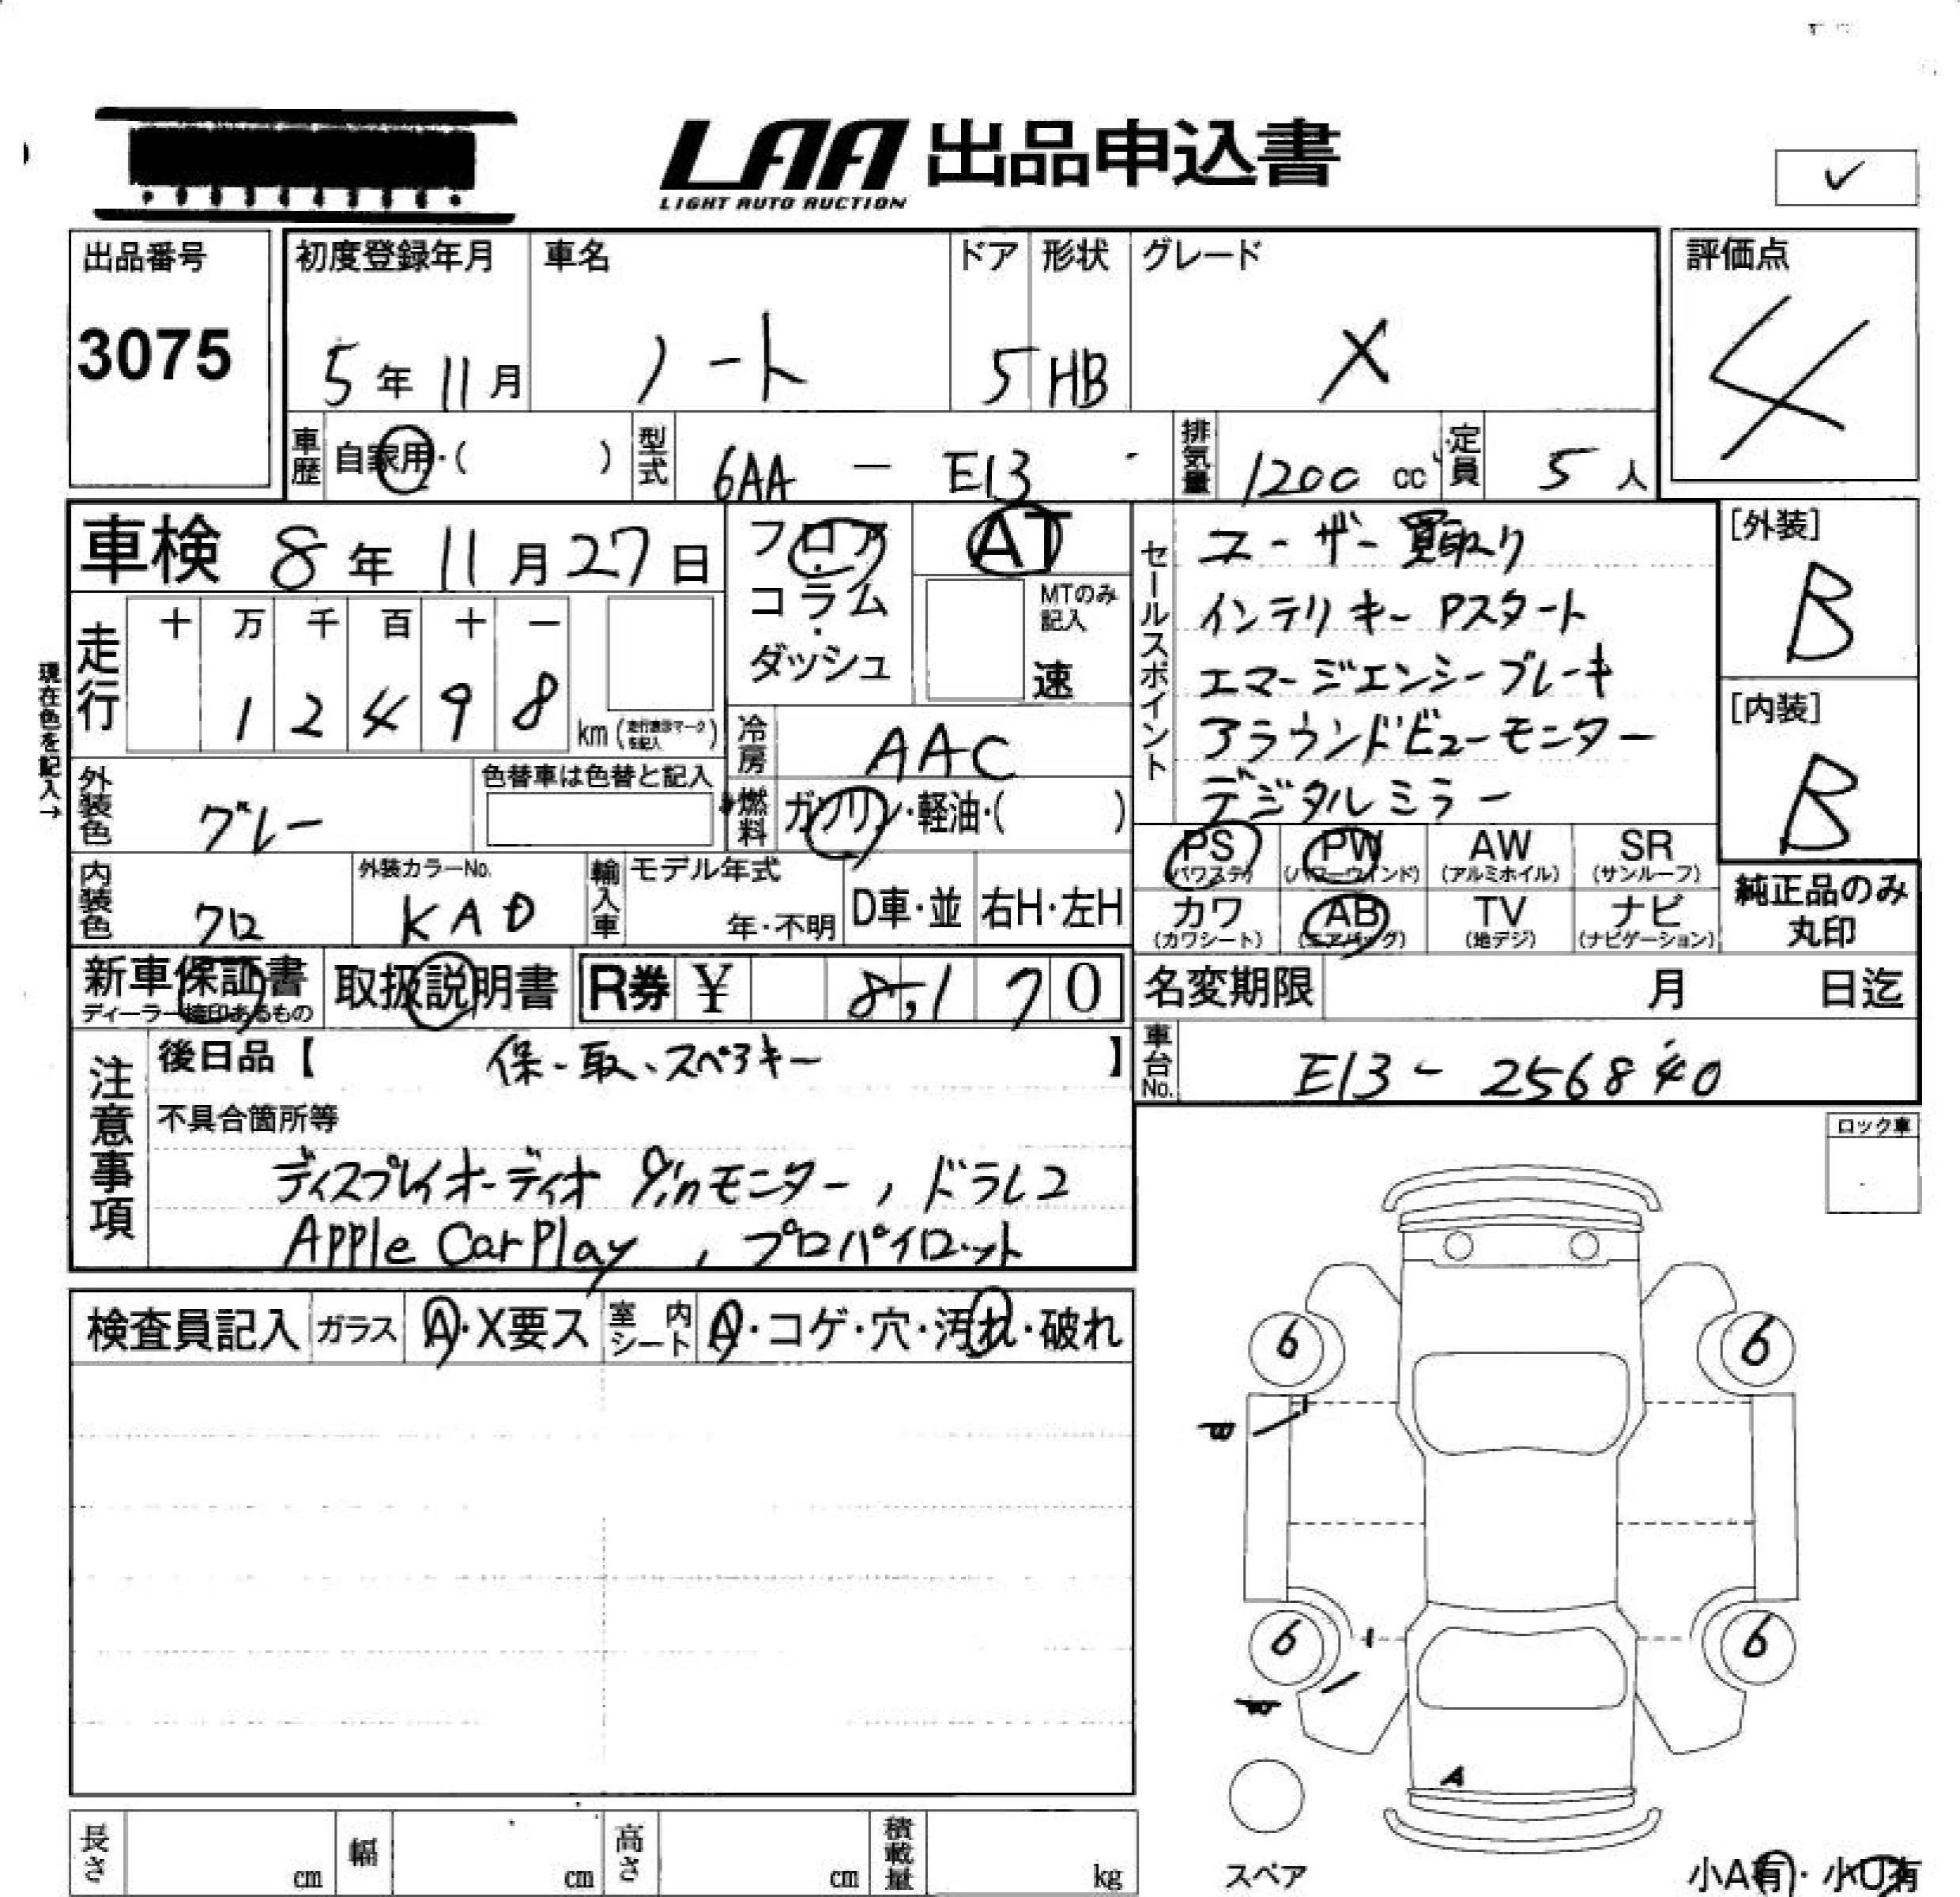 LAA 出品申込書
LIGHT AUTO AUCTION
✓
出品番号
3075
初度登録年月
5年11月
車名
ノート
ドア
5
形状
HB
グレード
X
評価点
4
車歴
自家用・( )
型式
6AA － E13
排気量
1200 cc
定員
5人
車検 8年11月27日
フロア・コラム・ダッシュ
AT
MTのみ記入
速
セールスポイント
ユーザー買取り
インテリキー Pスタート
エマージエンシーブレーキ
アラウンドビューモニター
デジタルミラー
[外装]
B
[内装]
B
現在色を記入→
走行
十 万 千 百 十 一
1 2 4 9 8
km (走行表示マークを記入)
冷房
AAC
外装色
グレー
色替車は色替と記入
燃料
ガソリン・軽油・( )
PS (パワステ)
PW (パワーウインド)
AW (アルミホイル)
SR (サンルーフ)
カワ (カワシート)
AB (エアバッグ)
TV (地デジ)
ナビ (ナビゲーション)
純正品のみ丸印
内装色
クロ
外装カラーNo.
KAD
輸入車
モデル年式
年・不明
D車・並
右H・左H
新車保証書
ディーラー捺印あるもの
取扱説明書
R券 ¥ 8,170
名変期限 月 日迄
車台No.
E13- 256840
注意事項
後日品【 保、取、スペアキー 】
不具合箇所等
ディスプレイオーディオ 9inモニター, ドラレコ
Apple CarPlay, プロパイロット
ロック車
検査員記入
ガラス
A・X要ス
室内シート
A・コゲ・穴・汚れ・破れ
6
6
6
6
A
長さ cm
幅 cm
高さ cm
積載量 kg
スペア
小A有・小U有